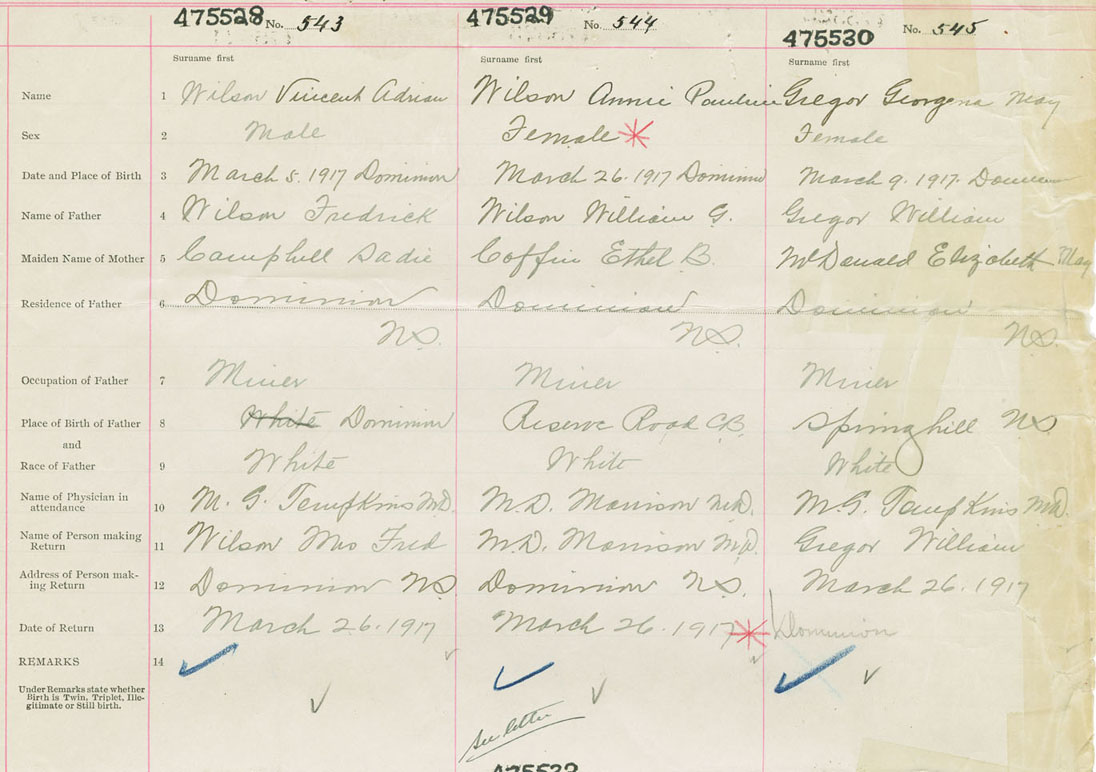 475528 No. 543 475529 No. 544 475530 No. 545
Surname first Surname first Surname first
Name 1 Wilson Vincent Adrian Wilson Annie Pauline Gregor Georgena May
Sex 2 Male Female * Female
Date and Place of Birth 3 March 5. 1917 Dominion March 26. 1917 Dominion March 9. 1917. Dominion
Name of Father 4 Wilson Fredrick Wilson William G. Gregor William
Maiden Name of Mother 5 Campbell Sadie Coffin Ethel B. McDanald Elizebeth May
Residence of Father 6 Dominion Dominion Dominion
N.S. N.S. N.S.
Occupation of Father 7 Miner Miner Miner
Place of Birth of Father 8 White Dominion Reserve Road C.B. Springhill N.S.
and
Race of Father 9 White White White
Name of Physician in attendance 10 M. G. Tompkins M.D. M.D. Morrison M.D. M.G. Tompkins M.D.
Name of Person making Return 11 Wilson Mrs Fred M.D. Morrison M.D. Gregor William
Address of Person making Return 12 Dominion N.S. Dominion N.S. March 26. 1917
Date of Return 13 March 26. 1917 March 26. 1917 * Dominion
REMARKS 14
Under Remarks state whether
Birth is Twin, Triplet, Ille-
gitimate or Still birth.
See letter